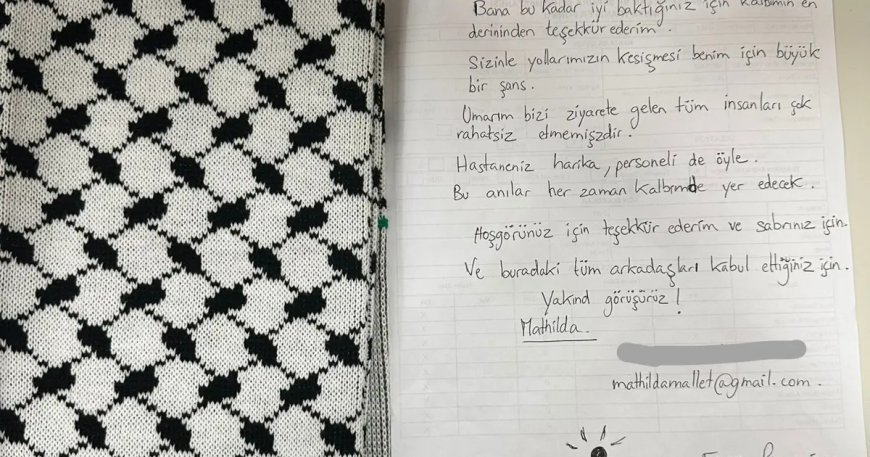 Bana bu kadar iyi baktığınız için kalbimin en
derininden teşekkür ederim.
Sizinle yollarımızın kesişmesi benim için büyük
bir şans.
Umarım bizi ziyarete gelen tüm insanları çok
rahatsız etmemişzdir.
Hastaneniz harika, personeli de öyle.
Bu anılar her zaman kalbimde yer edecek.
Hoşgörünüz için teşekkür ederim ve sabrınız için.
Ve buradaki tüm arkadaşları kabul ettiğiniz için.
Yakınd görüşürüz!
Mathilda.
mathildamallet@gmail.com.